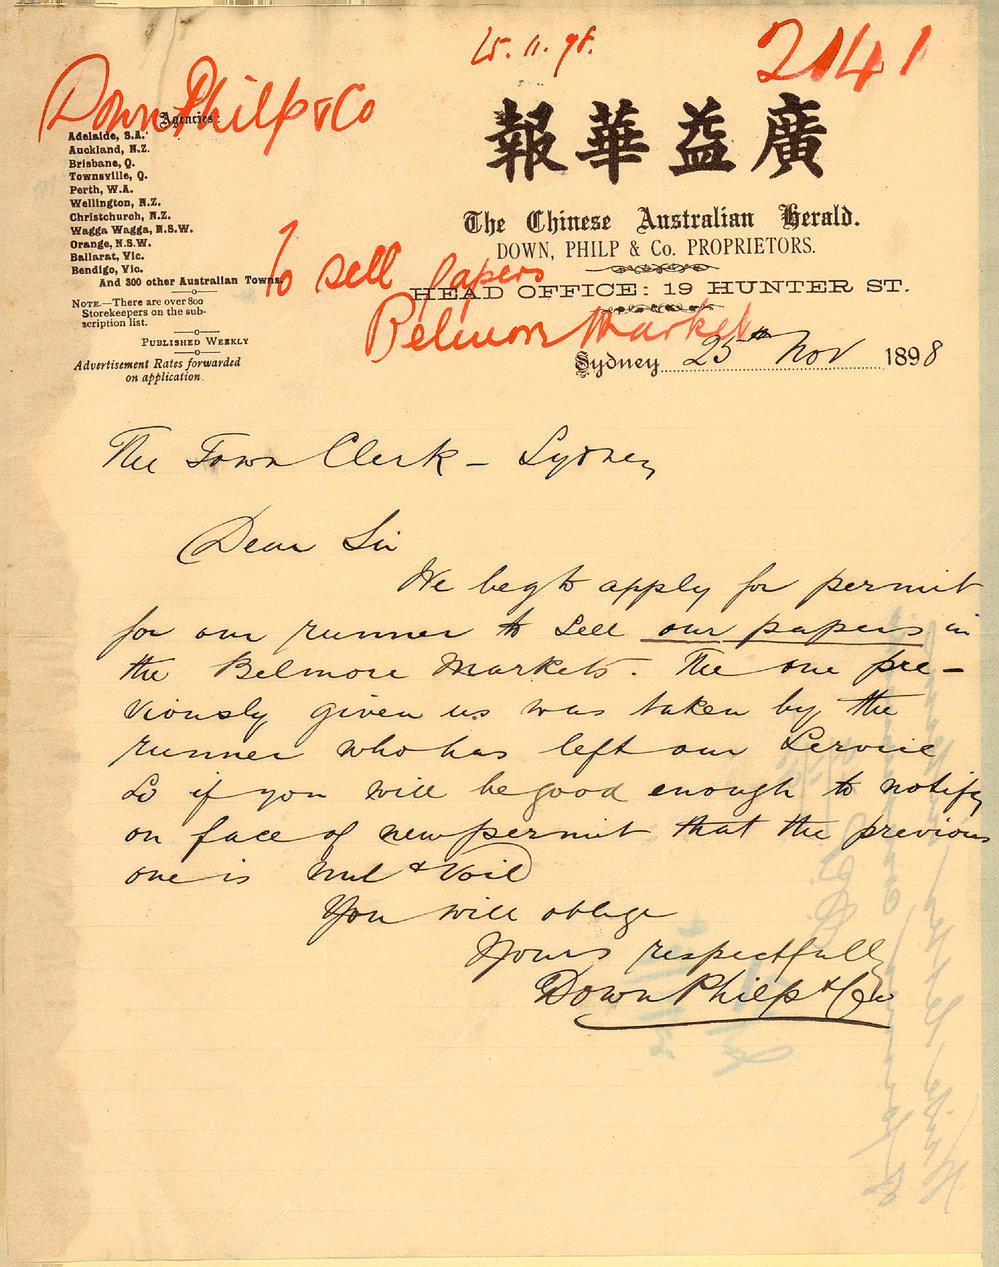 25.11.98.
2141
Down Philp & Co
Agencies:
Adelaide, S.A.
Auckland, N.Z.
Brisbane, Q.
Townsville, Q.
Perth, W.A.
Wellington, N.Z.
Christchurch, N.Z.
Wagga Wagga, N.S.W.
Orange, N.S.W.
Ballarat, Vic.
Bendigo, Vic.
And 300 other Australian Towns.
NOTE.—There are over 800
Storekeepers on the sub-
scription list.
PUBLISHED WEEKLY
Advertisement Rates forwarded
on application.
報華益廣
The Chinese Australian Herald.
DOWN, PHILP & Co. PROPRIETORS.
HEAD OFFICE: 19 HUNTER ST.
To sell papers
Belmore Market
Sydney 25th Nov 1898
The Town Clerk – Sydney
Dear Sir
We beg to apply for permit
for our runner to sell our papers in
the Belmore Markets. The one pre-
viously given us was taken by the
runner who has left our service
So if you will be good enough to notify
on face of new permit that the previous
one is Null & Void
You will oblige
Yours respectfully
Down Philp & Co